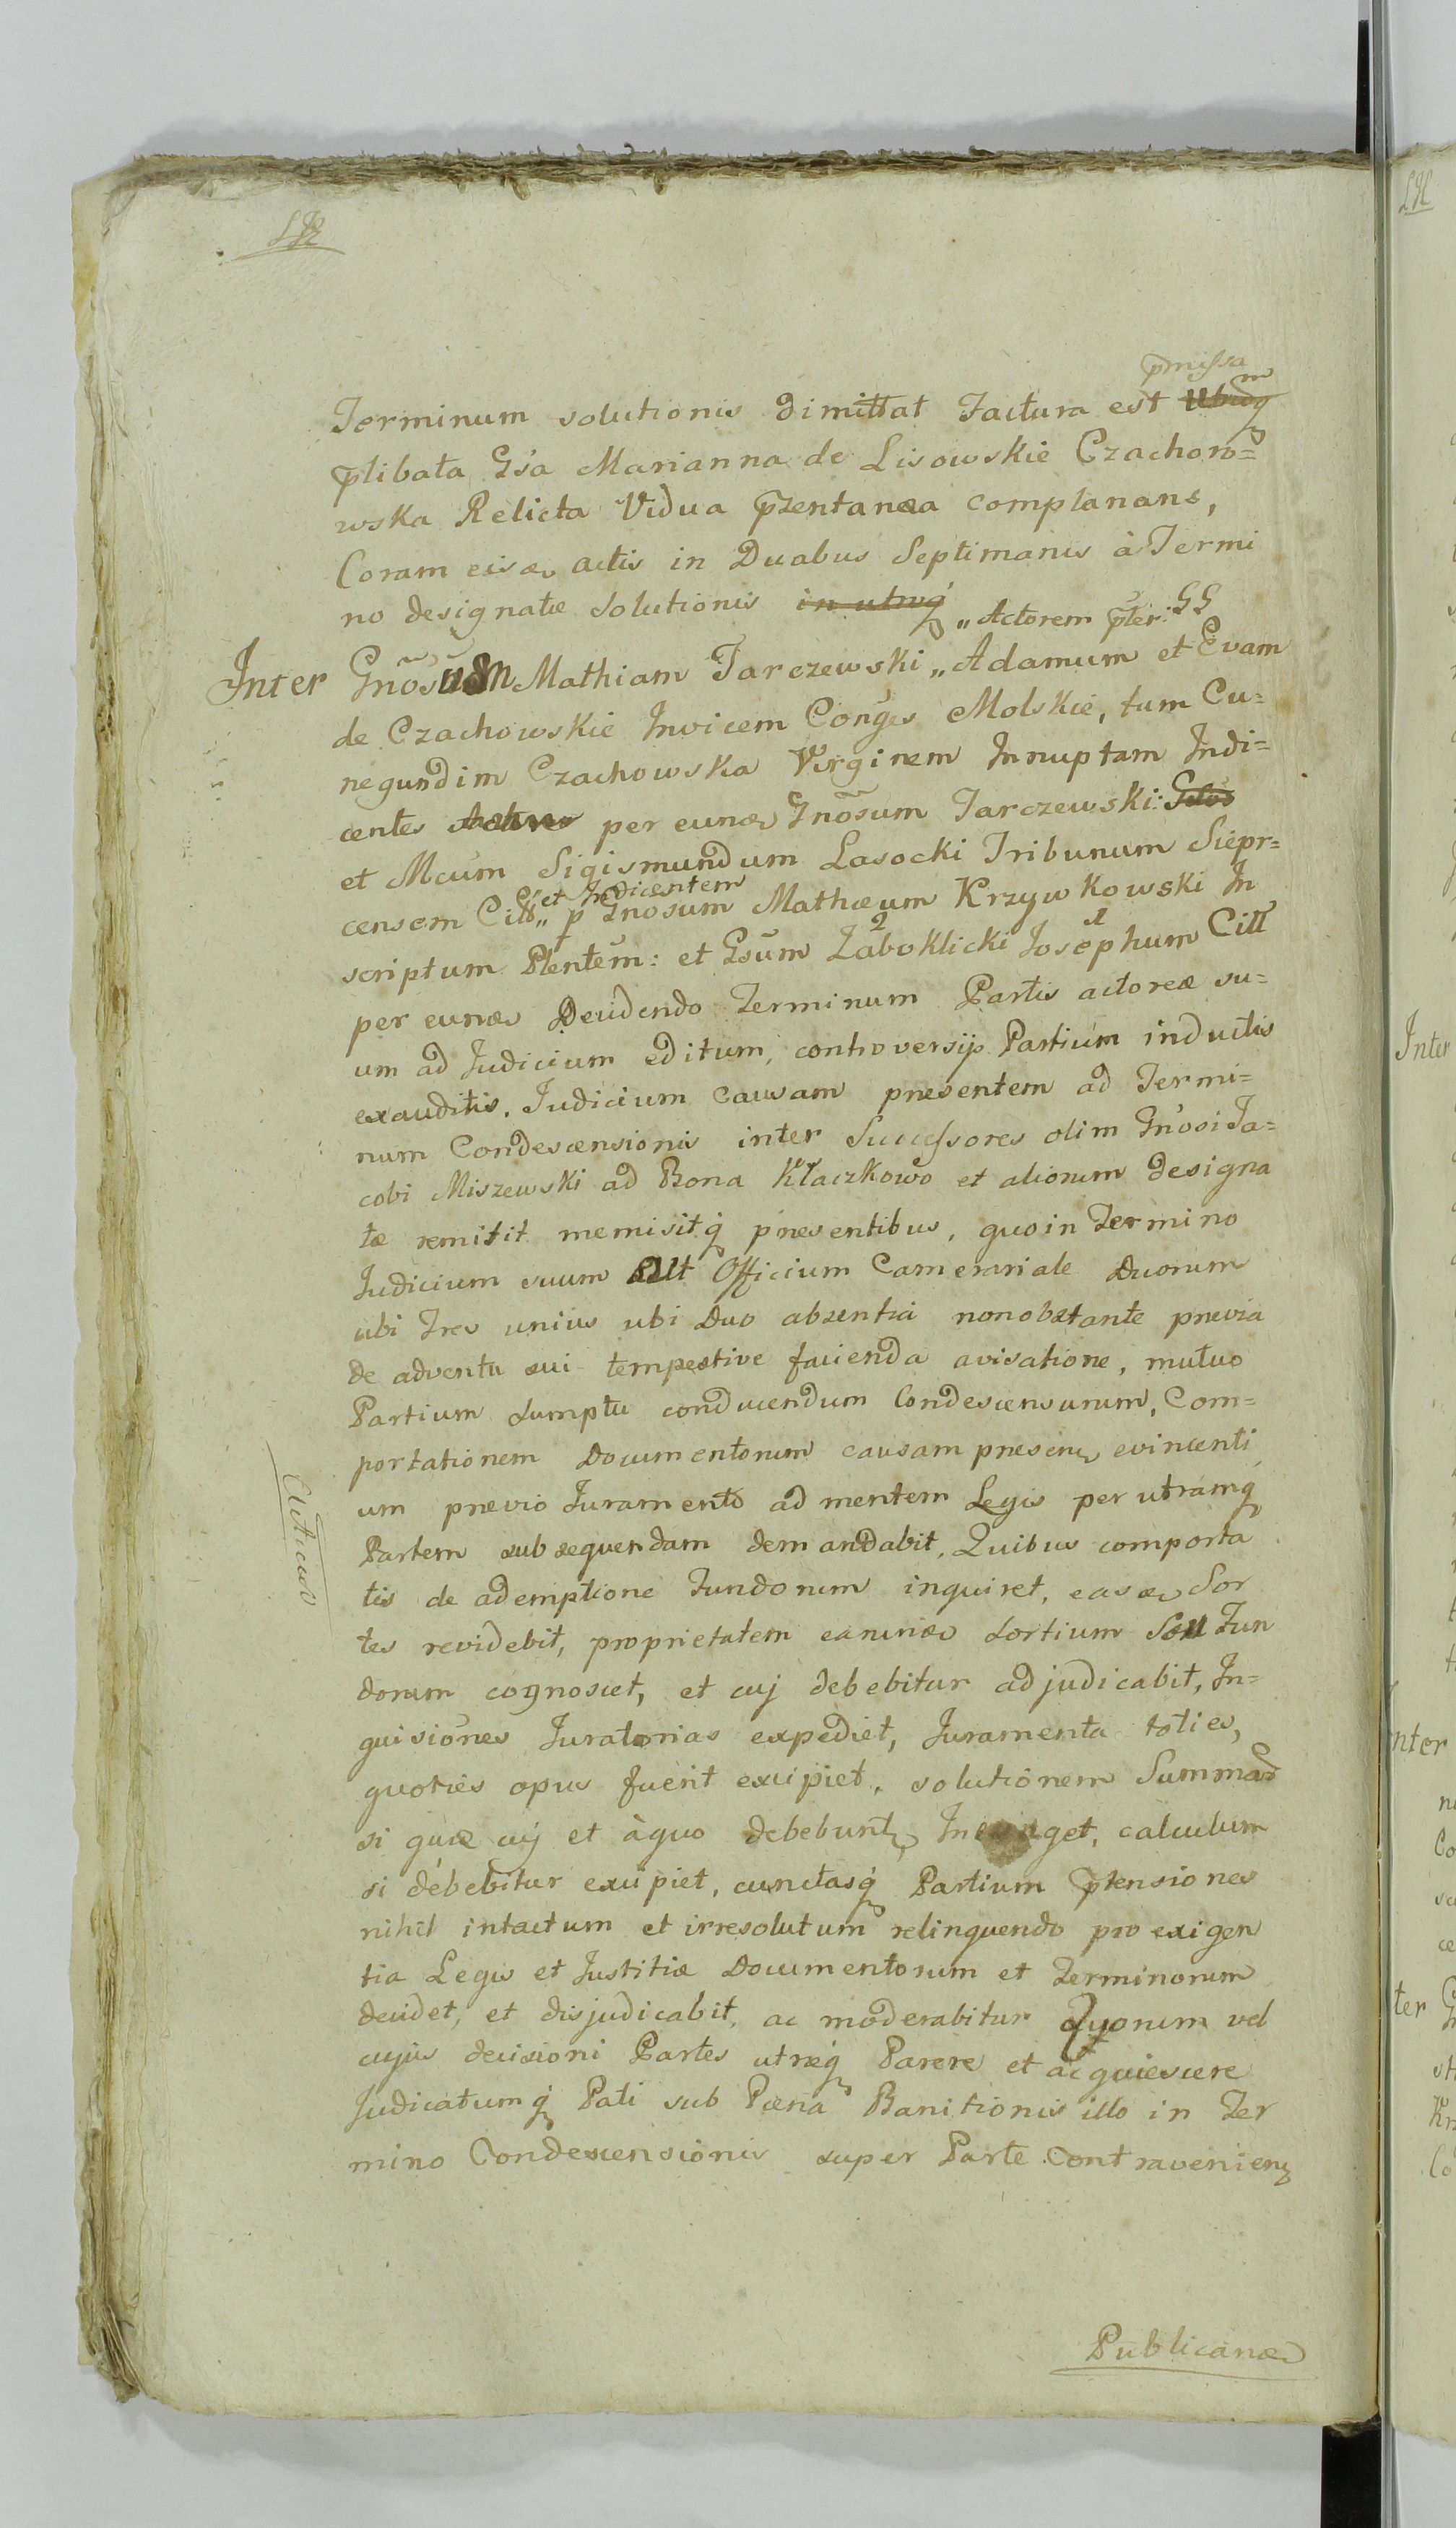 Terminum solutionis dimittat Factura est p̄missa
p̄libata Gsa Marianna de Lisowskie Czachoro=
wska Relicta Vidua p̄zentanea complanans,
Coram eisd actis in Duabus Septimanis à Termi
no designatæ solutionis in utroq́
„Actorem p̄ter: GG
Inter Gnõsum Mathiam Tarczewski „ Adamum et Evam
de Czachowskie Invicem Conges Molskie, tum Cu=
negundim Czachowska Virginem Innuptam Indi=
centes Actores per eund Gnõsum Tarczewski:
et Mcum Sigismundum Lasocki Tribunum Siepr=
et Indicentem
censem Citt „ p Gnosum Mathæum Krzywkowski In
2 1
scriptum Plentem: et Gsum Zaboklicki Josephum Citt
per eund Decidendo Terminum Partis actoreæ su=
um ad Judicium editum, controversijs Partium inductis
exauditis. Judicium causam presentem ad Termi=
num Condescensionis inter Successores olim Gnosi Ja=
cobi Miszewski ad Bona Kłaczkowo et aliorum designa
tæ remitit remisitq́ presentibus, quo in Termino
Judicium suum aut Officium Camerariale Duorum
ubi Tres unius ubi Duo absentia nonobstante previa
de adventu sui tempestive facienda avisatione, mutuo
Partium sumptu conducendum Condescensurum, Com=
portationem Documentorum causam presen evincenti
um previo Juramento ad mentem Legis per utramq́
Partem subsequendam demandabit, Quibus comporta
tis de ademptione Fundorum inquiret, easd Sor
tes revidebit, proprietatem earund sortium seu Fun
dorum cognoscet, et cuj debebitur adjudicabit, In=
quisiones Juratorias expediet, Juramenta toties,
quoties opus fuerit excipiet, solutionem Summar
si quæ cuj et à quo debebunt, calculum
si debebitur excipiet, cunctasq́ Partium p̄tensiones
nihil intactum et irresolutum relinquendo pro exigen
tia Legis et Justitiæ Documentorum et Terminorum
decidet, et disjudicabit, ac moderabitur Quorum vel
cujus decisioni Partes utræq́ Parere et acquiescere
Judicatumq́ Pati sub Pæna Banitionis illo in Ter
mino Condescensionis super Parte Contravenien
Publicand